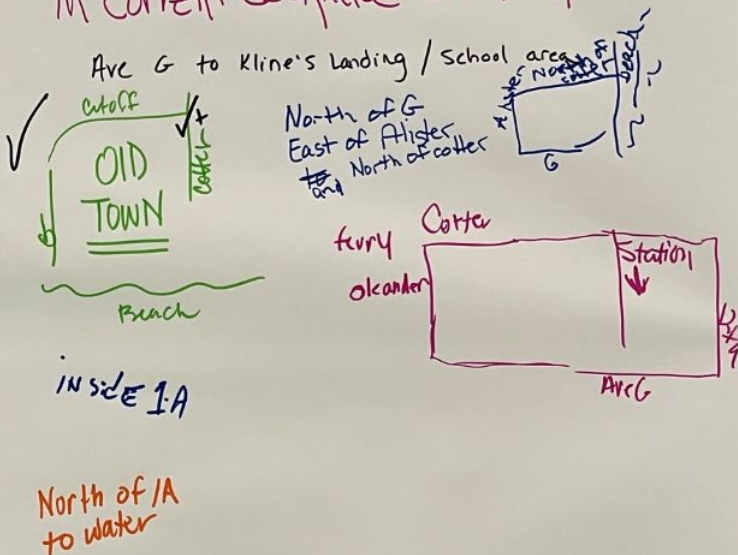 Ave G to Kline's Landing / School area
cutoff
OlD
TOWN
Cotter
Beach
North of G
East of Alister
and North of cotter
North of
cotter
Beach
G
ferry
Cotter
Station
Oleander
Ave G
iNSidE 1A
North of 1A
to water